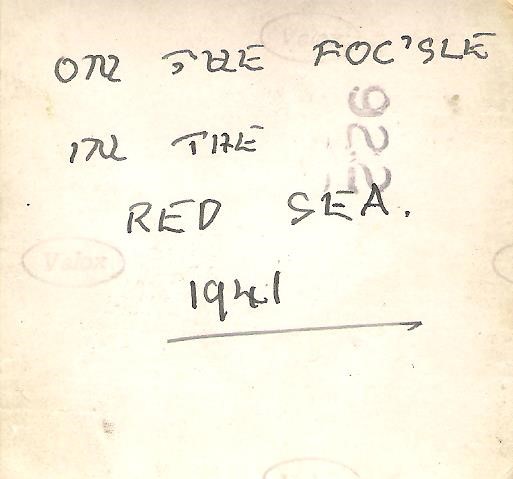 ON THE FOC'SLE
IN THE
922
RED SEA.
Velox
1941